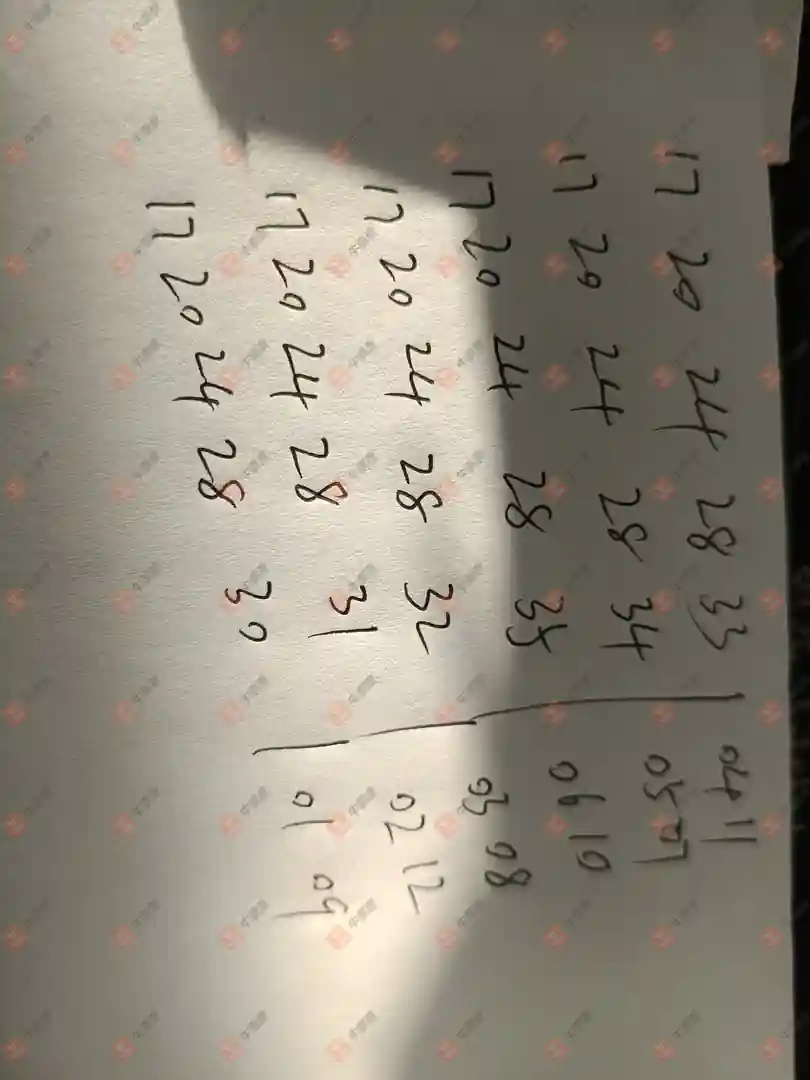 17 20 24 28 33 | 04 11
17 20 24 28 34 | 05 07
17 20 24 28 35 | 06 10
17 20 24 28 32 | 03 08
17 20 24 28 31 | 02 12
17 20 24 28 30 | 01 09